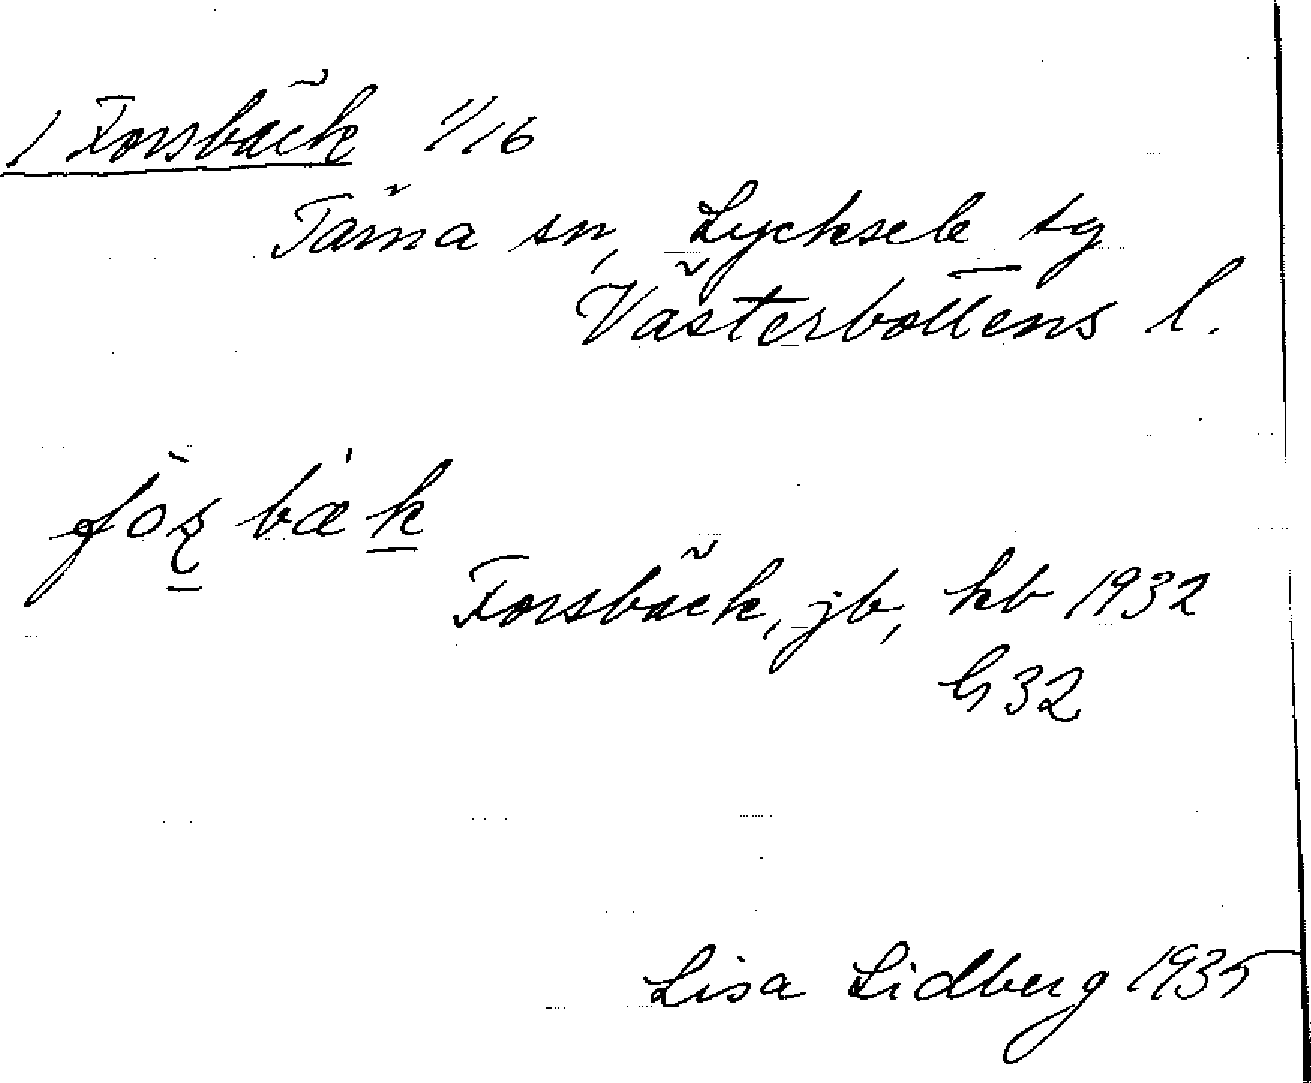 1 Forsbäck 1/16
Tärna sn, Lycksele tg
Västerbottens l.
bæk
Forsbäck, jb, kb 1932
G 32
Lisa Lidberg 1935